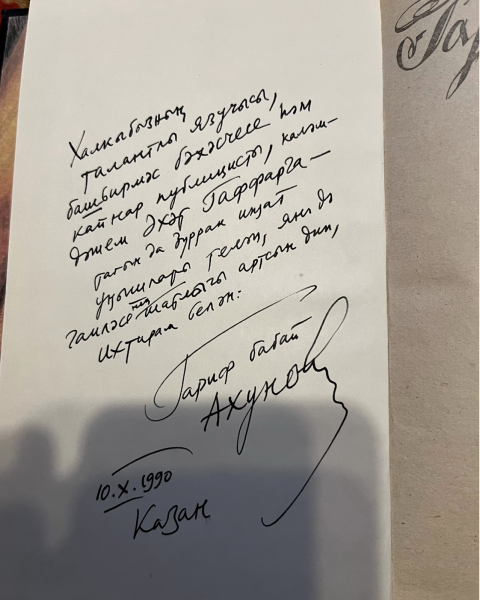 Халкыбызның
талантлы язучысы,
башбирмәс бәхәсчесе һәм
кайнар публицисты, каләм-
дәшем Әхәт Гаффарга —
тагын да зуррак иҗат
уңышлары теләп, дә
гаиләсенең шатлыгы артсын дип,
ихтирам белән:
Гариф бабай
Ахунов
10.X.1990
Казан
Га